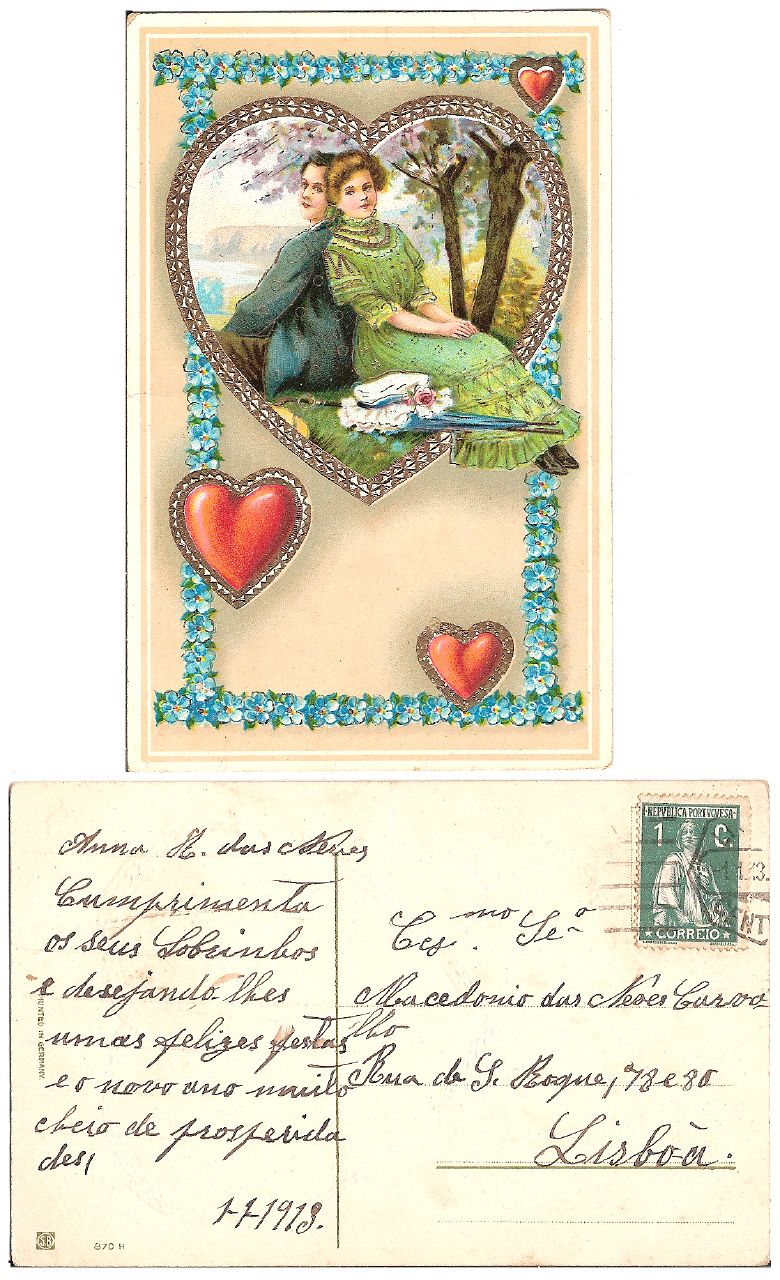 Anna R. das Neves
Cumprimenta
os seus Sobrinhos
e desejando-lhes
umas felizes festas
e o novo ano muito
cheio de prosperida
des,
1-1-1913.
REPUBLICA PORTUGUESA
1 C.
CORREIO
mo Sr.ª
Macedonio das Nêves Carva
lho
Rua de S. Roque, 78 e 80
Lisbôa.
PRINTED IN GERMANY.
SB 870 H